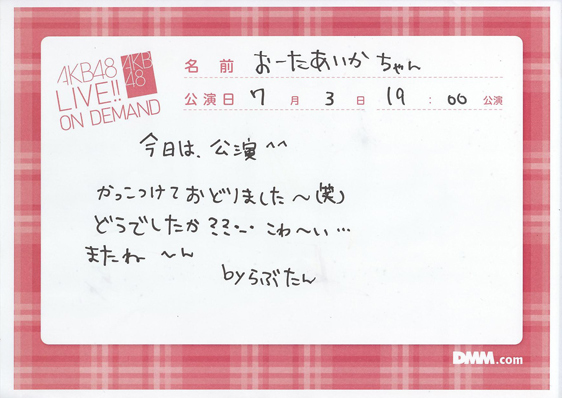 AKB48
LIVE!!
ON DEMAND
AKB
48
名前 おーたあいかちゃん
公演日 7月 3日 19:00 公演
今日は、公演^^
かっこつけておどりました〜(笑)
どうでしたか??・_・ こわ〜い…
またね 〜ん
byらぶたん
DMM.com